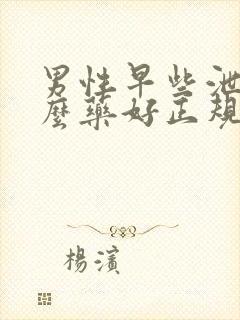 男性早些泄
麼藥好正規
楊濱